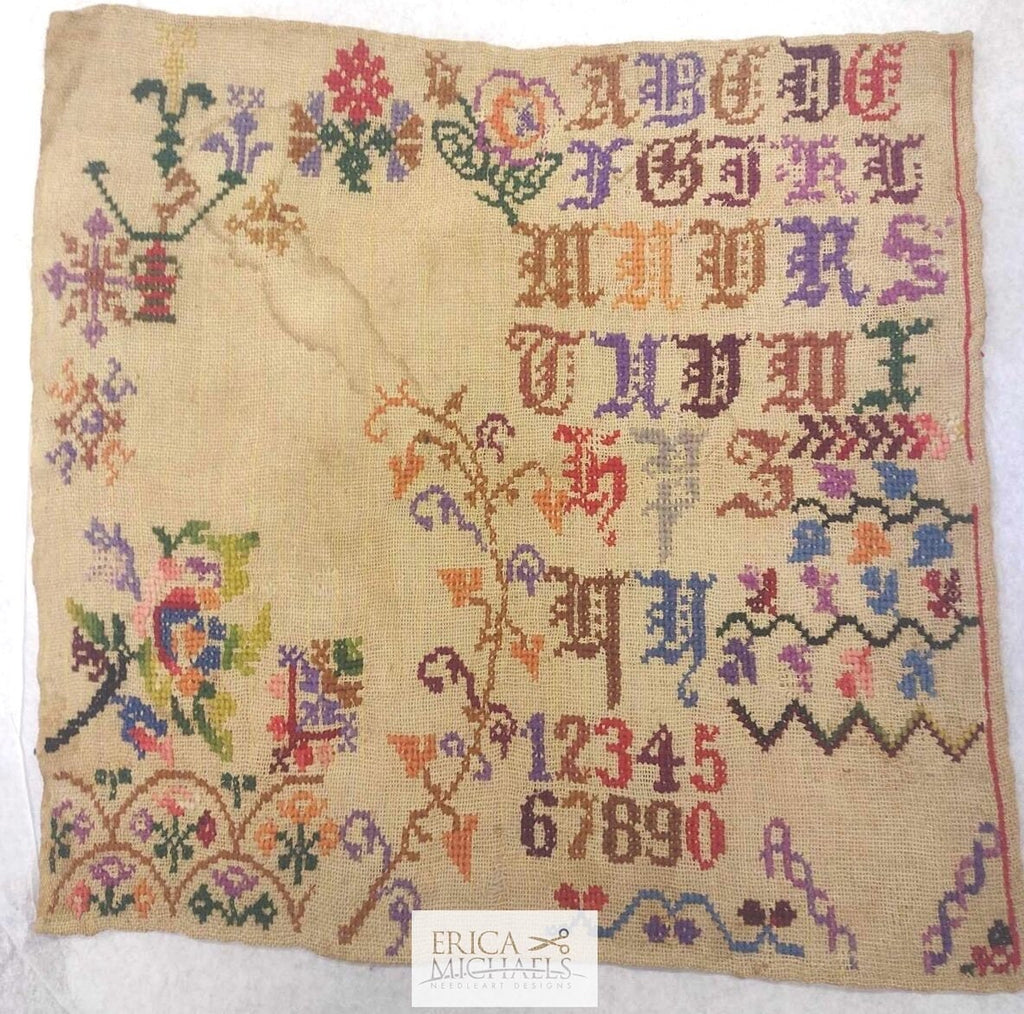 A B C D E
F G I K L
M N R S
T U V W I
Z
1 2 3 4 5
6 7 8 9 0
ERICA
MICHAELS
NEEDLEART DESIGNS